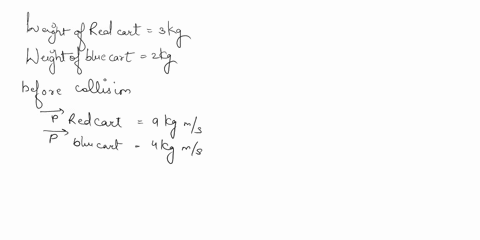 Weight of Red cart = 3kg
Weight of blue cart = 2kg
before collision
P Red cart = 9 kg m/s
P blue cart = 4 kg m/s